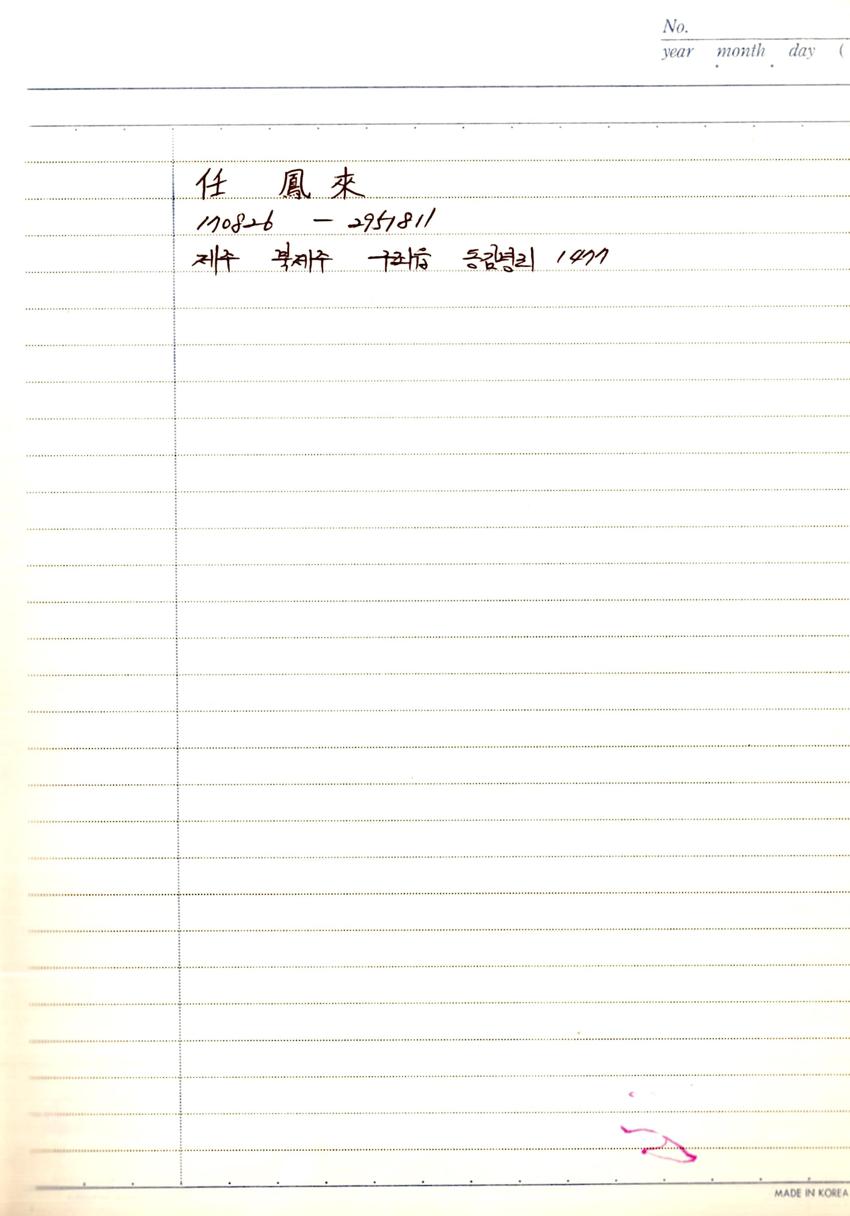 No.
year month day (
任 鳳 來
170826 - 2951811
제주 북제주 구좌읍 동김녕리 1477
MADE IN KOREA